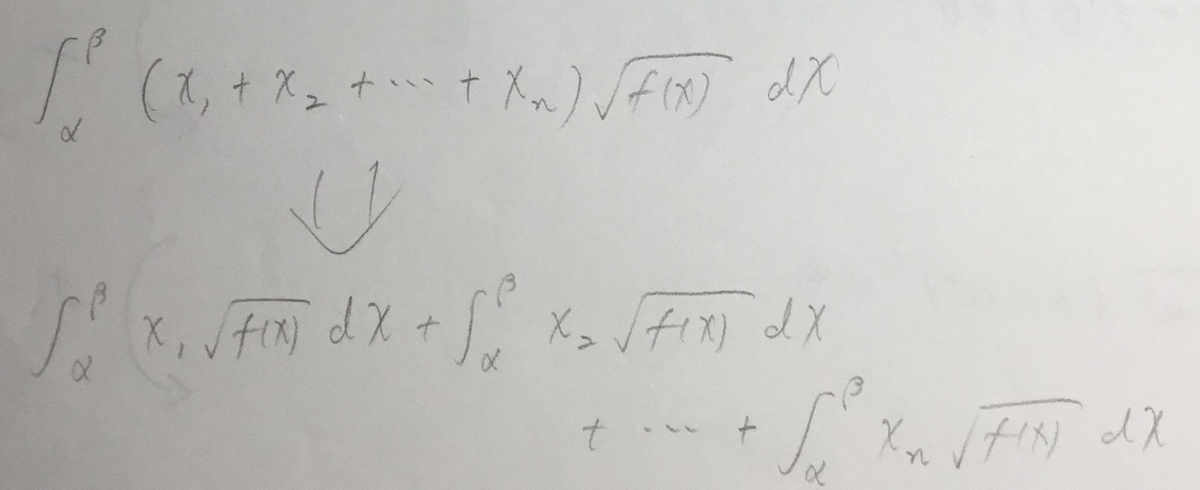 ∫_α^β (x₁ + x₂ + ⋯ + xₙ)√f(x) dx
⇓
∫_α^β x₁√f(x) dx + ∫_α^β x₂√f(x) dx
+ ⋯ + ∫_α^β xₙ√f(x) dx